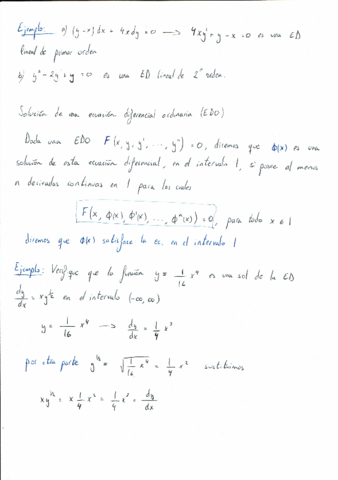 Ejemplo: a) (y-x)dx + 4xdy = 0 → 4xy' + y - x = 0 es una ED
lineal de primer orden
b) y'' - 2y' + y = 0 es una ED lineal de 2º orden.
Solución de una ecuación diferencial ordinaria (EDO)
Dada una EDO F(x, y, y', ..., yⁿ) = 0, diremos que ϕ(x) es una
solución de esta ecuación diferencial, en el intervalo I, si posee al menos
n derivadas continuas en I para los cuales
F(x, ϕ(x), ϕ'(x), ..., ϕⁿ(x)) = 0, para todo x ∈ I
diremos que ϕ(x) satisface la ec. en el intervalo I
Ejemplo: Verifique que la función y = 1/16 x⁴ es una sol de la ED
dy/dx = xy^1/2 en el intervalo (-∞, ∞)
y = 1/16 x⁴ → dy/dx = 1/4 x³
por otra parte y^1/2 = √(1/16 x⁴) = 1/4 x² sustituimos
xy^1/2 = x 1/4 x² = 1/4 x³ = dy/dx